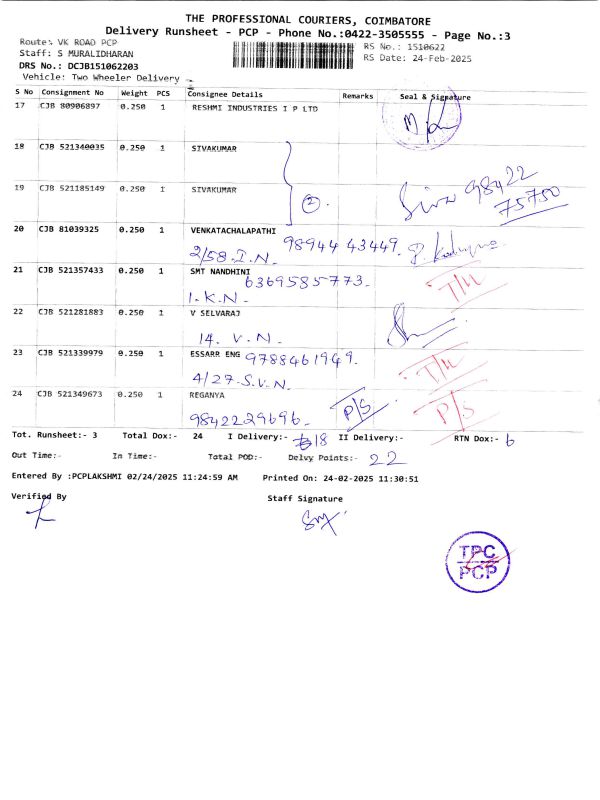 THE PROFESSIONAL COURIERS, COIMBATORE
Delivery Runsheet - PCP - Phone No.:0422-3505555 - Page No.:3
Route: VK ROAD PCP
RS No.: 1510622
Staff: S MURALIDHARAN
RS Date: 24-Feb-2025
DRS No.: DCJB151062203
Vehicle: Two Wheeler Delivery
S No Consignment No Weight PCS Consignee Details Remarks Seal & Signature
17 CJB 80906897 0.250 1 RESHMI INDUSTRIES I P LTD
18 CJB 521340035 0.250 1 SIVAKUMAR
19 CJB 521185149 0.250 1 SIVAKUMAR
2
Siva 98422
75750
20 CJB 81039325 0.250 1 VENKATACHALAPATHI
98944 43449.
2/58. I. N.
21 CJB 521357433 0.250 1 SMT NANDHINI
6369585773.
1. K. N.
22 CJB 521281883 0.250 1 V SELVARAJ
14. V. N.
23 CJB 521339979 0.250 1 ESSARR ENG 9788461949.
4/27. S. V. N.
24 CJB 521349673 0.250 1 REGANYA
9842229696. P/S P/S
Tot. Runsheet:- 3 Total Dox:- 24 I Delivery:- 18 II Delivery:- RTN Dox:- 6
Out Time:- In Time:- Total POD:- Delvy Points:- 22
Entered By :PCPLAKSHMI 02/24/2025 11:24:59 AM Printed On: 24-02-2025 11:30:51
Verified By Staff Signature
TPC
PCP